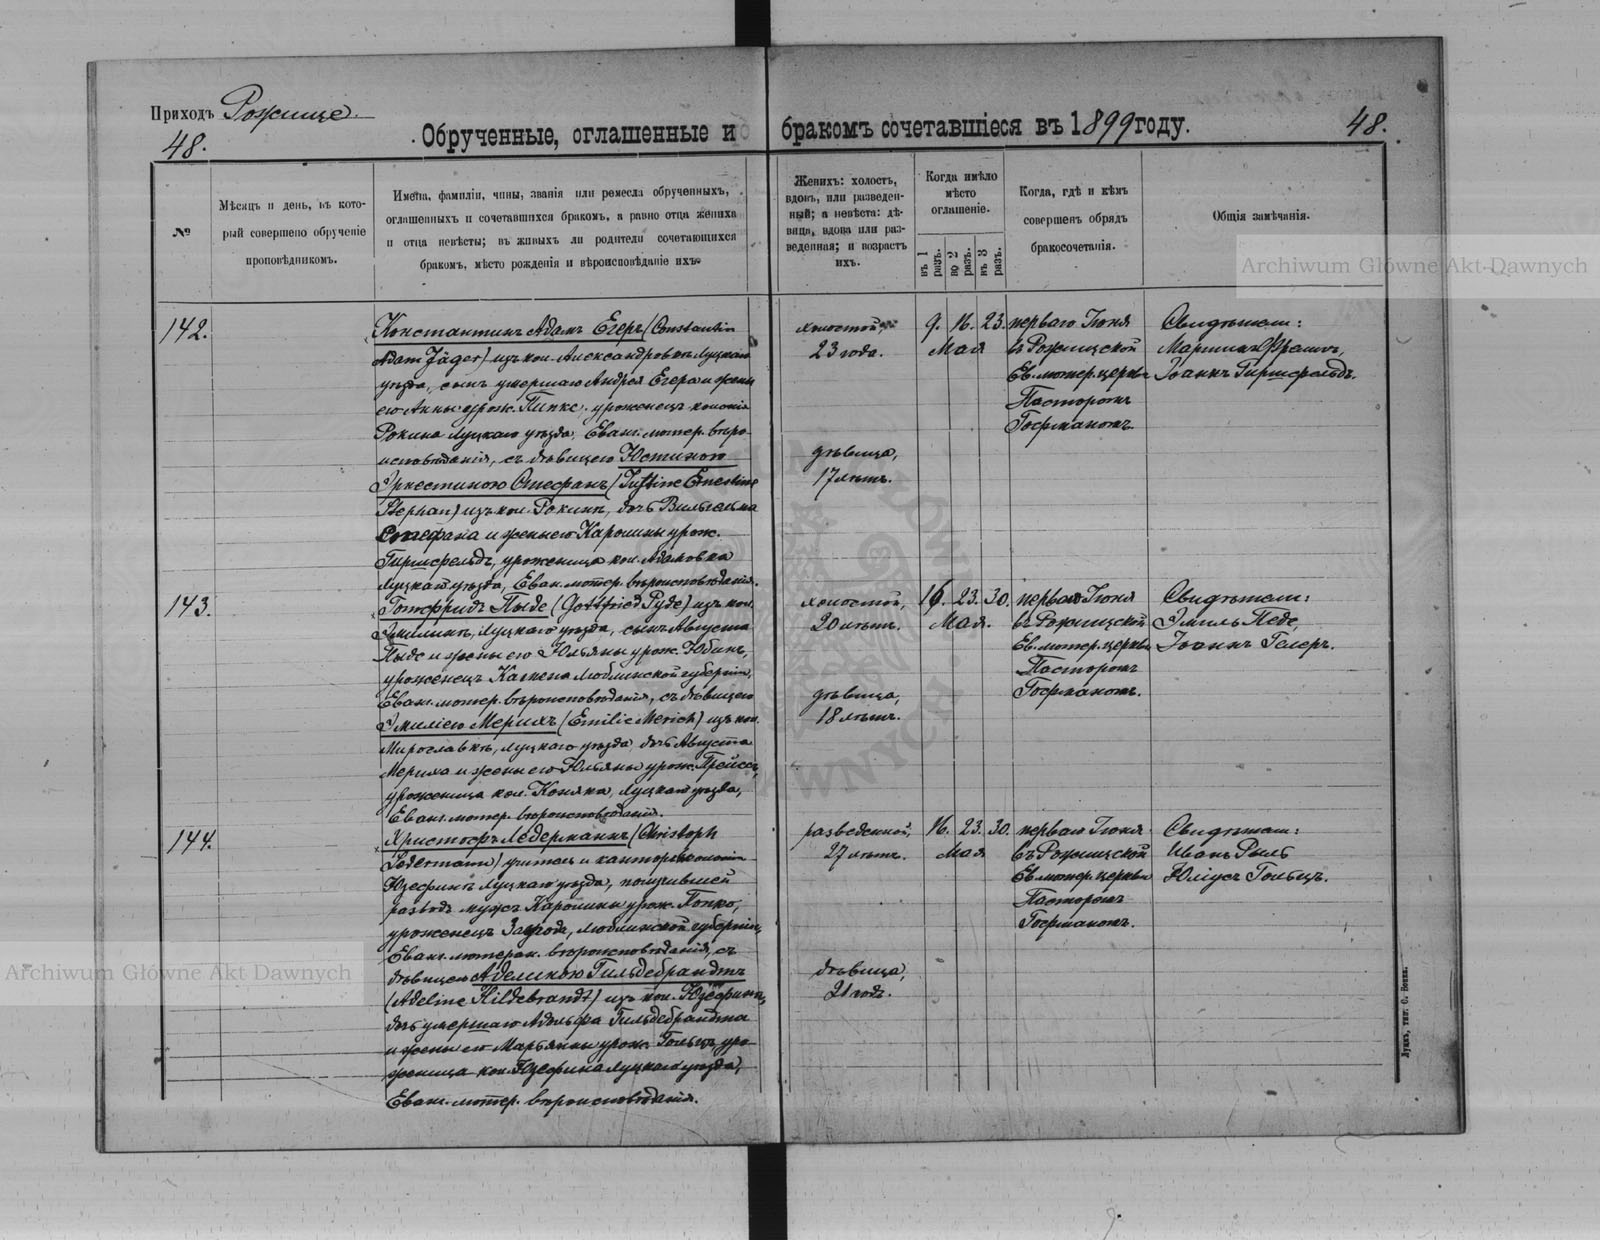 Приходъ Рожище.
48.
Обрученные, оглашенные и бракомъ сочетавшіеся въ 1899 году.
48.
№
Мѣсяцъ и день, въ кото-
рый совершено обрученіе
проповѣдникомъ.
Имена, фамиліи, чины, званія или ремесла обрученныхъ,
оглашенныхъ и сочетавшихся бракомъ, а равно отца жениха
и отца невѣсты; въ живыхъ ли родители сочетающихся
бракомъ, мѣсто рожденія и вѣроисповѣданіе ихъ.
Женихъ: холостъ,
вдовъ, или разведен-
ный; а невѣста: дѣ-
вица, вдова или раз-
веденная; и возрастъ
ихъ.
Когда имѣло
мѣсто
оглашеніе.
въ 1 разъ.
во 2 разъ.
въ 3 разъ.
Когда, гдѣ и кѣмъ
совершенъ обрядъ
бракосочетанія.
Общія замѣчанія.
142.
Константинъ Адамъ Егеръ (Constantin
Adam Jäger) изъ кол. Александровкѣ Луцкаго
уѣзда, сынъ умершаго Андрея Егера и жены
его Анны урож. Пипке, уроженецъ колоніи
Рокина Луцкаго уѣзда, Еван. лютер. вѣро-
исповѣданія, съ дѣвицею Юстиною
Эрнестиною Стефанъ (Justine Ernestine
Stephan) изъ кол. Рокинъ, дочь Вильгельма
Стефана и жены его Каролины урож.
Гиршфельдъ, уроженица кол. Адамовка
Луцкаго уѣзда, Еван. лютер. вѣроисповѣданія.
холостой,
23 года.
дѣвица,
17 лѣтъ.
9. 16. 23.
Мая
перваго Іюня
въ Рожищской
Ев. лютер. церкви
Пасторомъ
Госрманомъ.
Свидѣтели:
Мартинъ
Іоаннъ Гиршфельдъ.
143.
Готфридъ Пыде (Gottfried Pyde) изъ кол.
Эмилинъ, Луцкаго уѣзда, сынъ Августа
Пыде и жены его Юльяны урож. Юбинъ,
уроженецъ Камена Люблинской губерніи,
Еван. лютер. вѣроисповѣданія, съ дѣвицею
Эмиліею Мерихъ (Emilie Merich) изъ кол.
Мирославкѣ, Луцкаго уѣзда, дочь Августа
Мериха и жены его Юльяны урож. Прейсъ,
уроженица кол. Копяка, Луцкаго уѣзда,
Еван. лютер. вѣроисповѣданія.
холостой,
20 лѣтъ.
дѣвица,
18 лѣтъ.
16. 23. 30.
Мая.
перваго Іюня
въ Рожищской
Ев. лютер. церкви
Пасторомъ
Госрманомъ.
Свидѣтели:
Эмиль Педе,
Іоаннъ Гелеръ.
144.
Христофъ Ледерманнъ (Christoph
Ledermann) учитель и канторъ колоніи
Юзефинъ Луцкаго уѣзда, получившей
разводъ мужъ Каролины урож. Попко,
уроженецъ Загрода, Люблинской губерніи,
Еван. лютеран. вѣроисповѣданія, съ
дѣвицею Аделиною Гильдебрандтъ
(Adeline Hildebrandt) изъ кол. Юзефинъ,
дочь умершаго Адольфа Гильдебрандта
и жены его Марьянны урож. Гольцъ, уро-
женица кол. Юзефина Луцкаго уѣзда,
Еван. лютер. вѣроисповѣданія.
разведенной,
27 лѣтъ.
дѣвица,
21 годъ.
16. 23. 30.
Мая
перваго Іюня
въ Рожищской
Ев. лютер. церкви
Пасторомъ
Госрманомъ.
Свидѣтели:
Иванъ Рыль
Юліусъ Гольцъ.
Луцкъ, тип. С. Бонк.
Archiwum Główne Akt Dawnych
Archiwum Główne Akt Dawnych